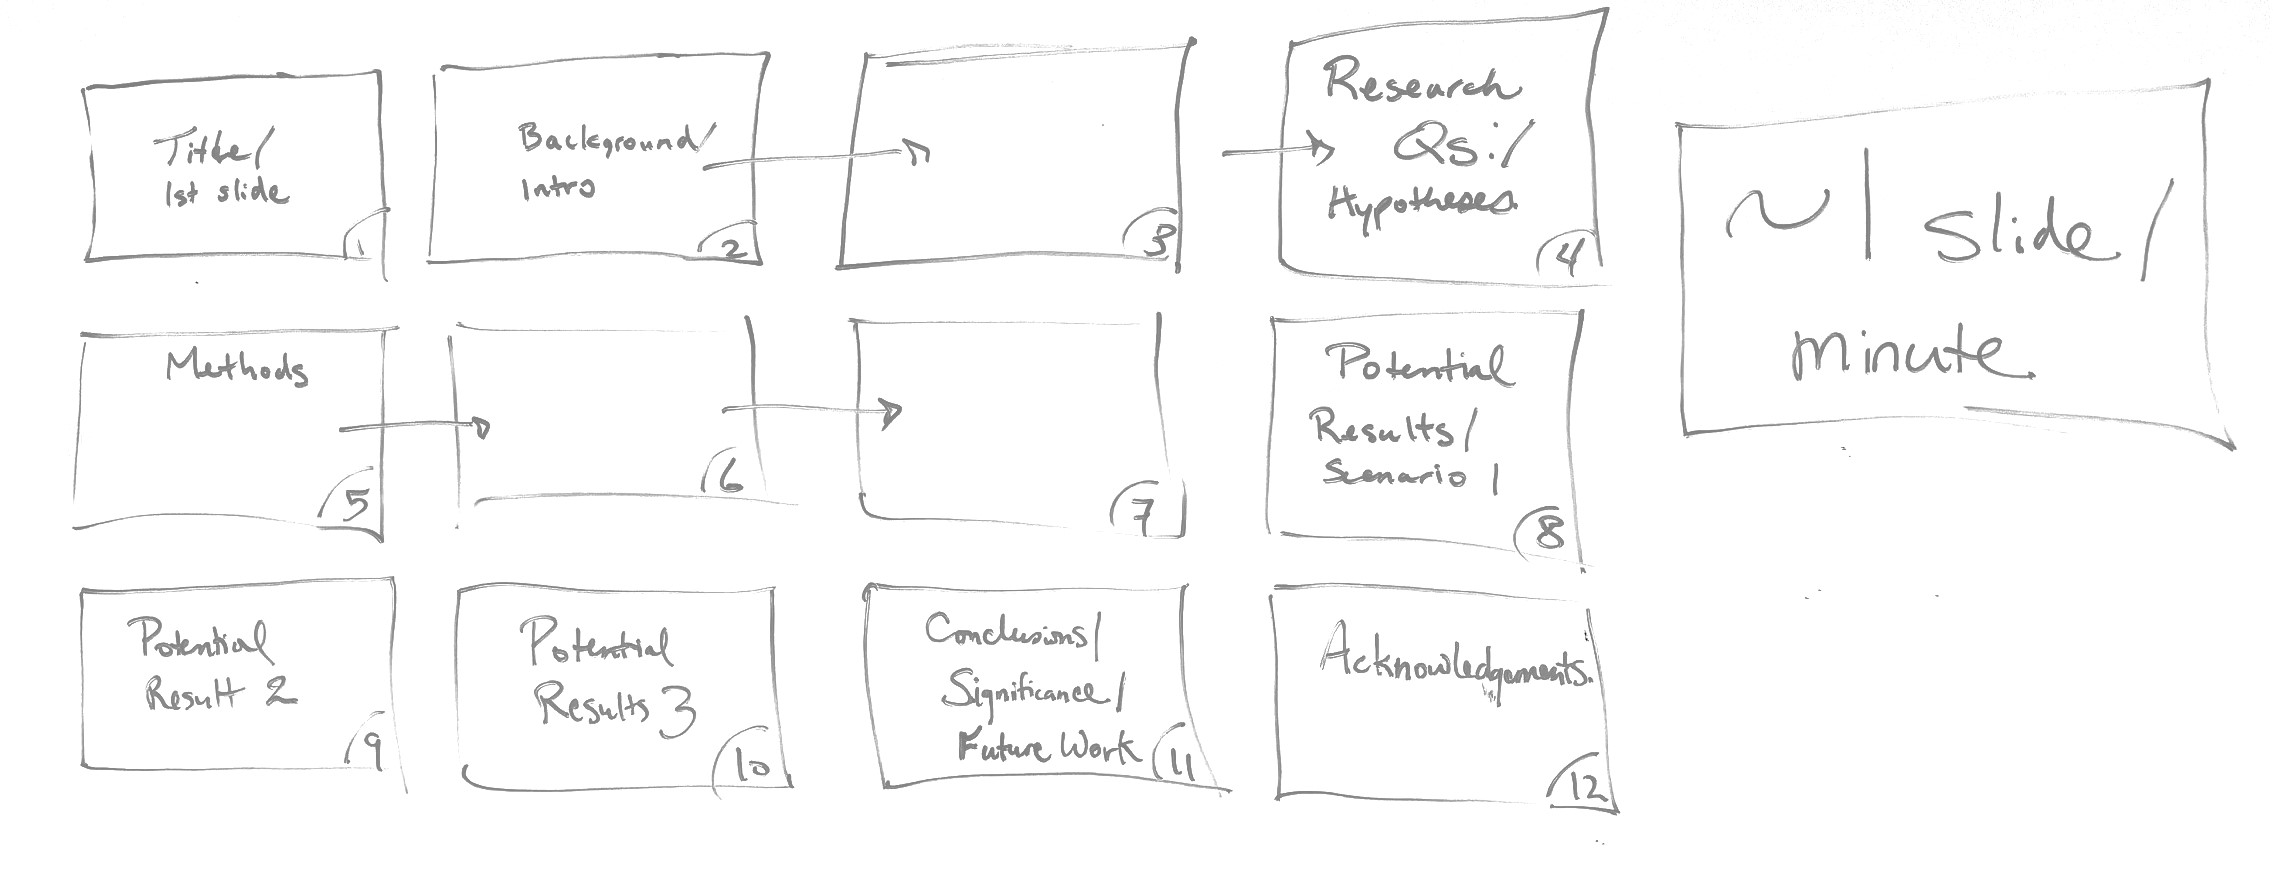 Title/
1st slide
1
Background/
Intro
2
3
Research
Qs:/
Hypotheses.
4
~1 slide/
minute
Methods
5
6
7
Potential
Results/
Scenario 1
8
Potential
Result 2
9
Potential
Results 3
10
Conclusions/
Significance/
Future Work
11
Acknowledgements.
12